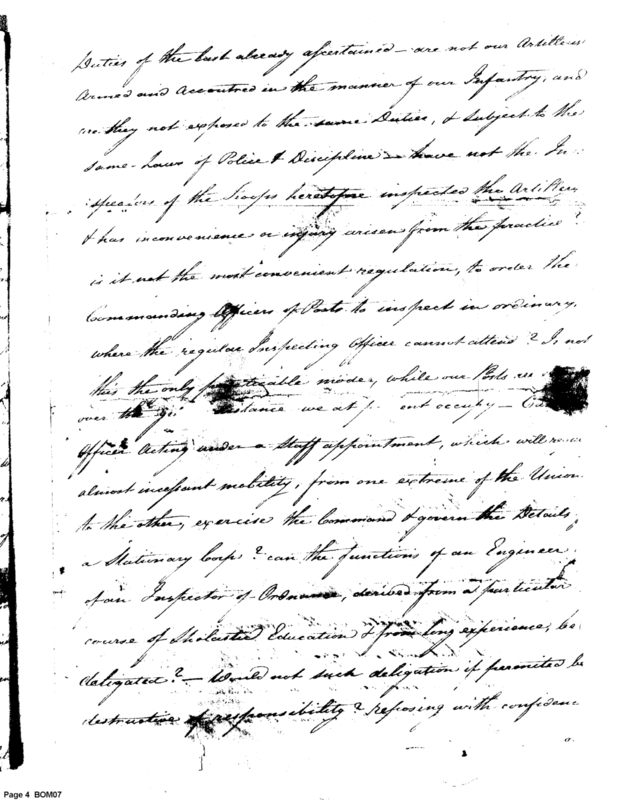 Duties of the last already ascertained – are not our Artillerists
Armed and Accoutred in the manner of our Infantry, and
are they not exposed to the same Duties, & subject to the
same Laws of Police & Discipline – have not the In-
spectors of the Troops heretofore inspected the Artillery
& has inconvenience or injury arisen from the practice?
is it not the most convenient regulation, to order the
Commanding Officers of Posts to inspect in ordinary,
where the regular Inspecting Officer cannot attend? Is not
this the only practicable mode, while our Posts are
over the distance we at present occupy –
Officer Acting under a Staff appointment, which will
almost incessant mobility, from one extreme of the Union
to the other, exercise the Command & govern the Details
a Stationary Corp? can the functions of an Engineer
of an Inspector of Ordnance, derived from a particular
course of Scholastic Education & from long experience, be
deligated? – Would not such deligation if permitted be
destructive of responsibility? reposing with confidence
a
Page 4 BOM07